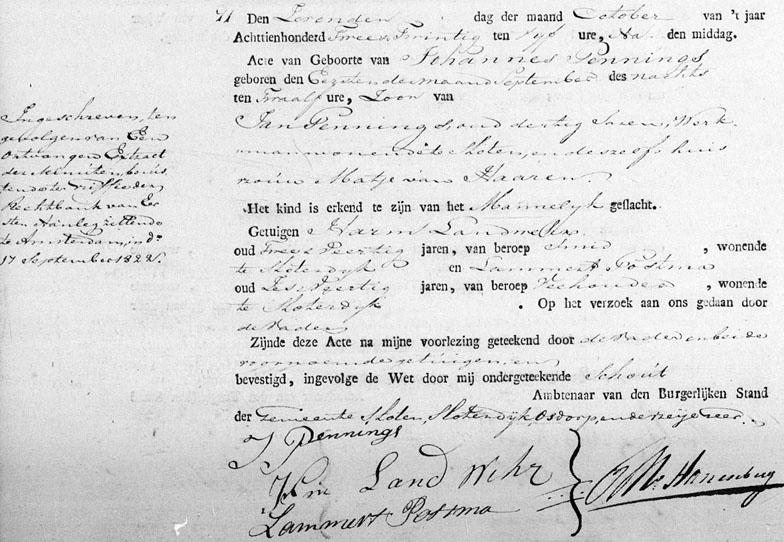 Den dag der maand October van 't jaar
Achttienhonderd Twee en Twintig ten Vyf ure, Na den middag.
Acte van Geboorte van Johannes Pennings
geboren den Eersten der maand September des nachts
ten Twaalf ure, Zoon van
Jan Pennings, oud dertig Jaren, Werk-
man wonende te Sloten, en deszelfs huis
vrouw Matje van Haaren
Het kind is erkend te zijn van het Mannelyk geslacht.
Getuigen Harm Landweher
oud Twee en Veertig jaren, van beroep Smid, wonende
te Sloterdyk en Lammert Postma
oud Zes en Veertig jaren, van beroep Veehouder, wonende
te Sloterdyk. Op het verzoek aan ons gedaan door
de Vader
Zijnde deze Acte na mijne voorlezing geteekend door de Vader en beide
voornoemde getuigen, en
bevestigd, ingevolge de Wet door mij ondergeteekende Schout
Ambtenaar van den Burgerlijken Stand
der Gemeente Sloten, Sloterdyk, Osdorp, en de
Ingeschreven, ten
gevolgen van Een
Ontvangen Extract
der Minuten, berus
tende ter Griffie der
Rechtbank van Eer
sten Aanleg zittende
te Amsterdam, in d°
17 September 1822.
J Pennings
Land Wehr
Lammert Postma
Hanenberg